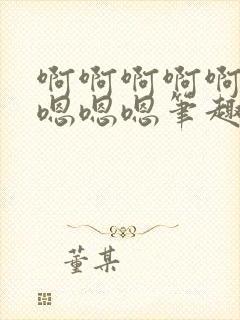 啊啊啊啊啊
嗯嗯嗯笔趣
董某